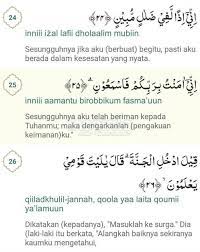 24
اِنِّيْٓ اِذًا لَّفِيْ ضَلٰلٍ مُّبِيْنٍ ﴿٢٤﴾
inniii iżal lafii dholaalim mubiin
Sesungguhnya jika aku (berbuat) begitu, pasti aku
berada dalam kesesatan yang nyata.
25
اِنِّيْٓ اٰمَنْتُ بِرَبِّكُمْ فَاسْمَعُوْنِ ۗ ﴿٢٥﴾
inniii aamantu birobbikum fasma'uun
Sesungguhnya aku telah beriman kepada
Tuhanmu; maka dengarkanlah (pengakuan
keimanan)ku."
26
قِيْلَ ادْخُلِ الْجَنَّةَ ۗ قَالَ يٰلَيْتَ قَوْمِيْ
يَعْلَمُوْنَ ۙ ﴿٢٦﴾
qiiladkhulil-jannah, qoola yaa laita qoumii
ya'lamuun
Dikatakan (kepadanya), "Masuklah ke surga." Dia
(laki-laki itu) berkata, "Alangkah baiknya sekiranya
kaumku mengetahui,